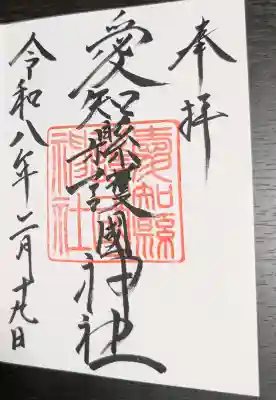 奉拝
愛知縣護國神社
愛知縣
神社
令和八年二月十九日